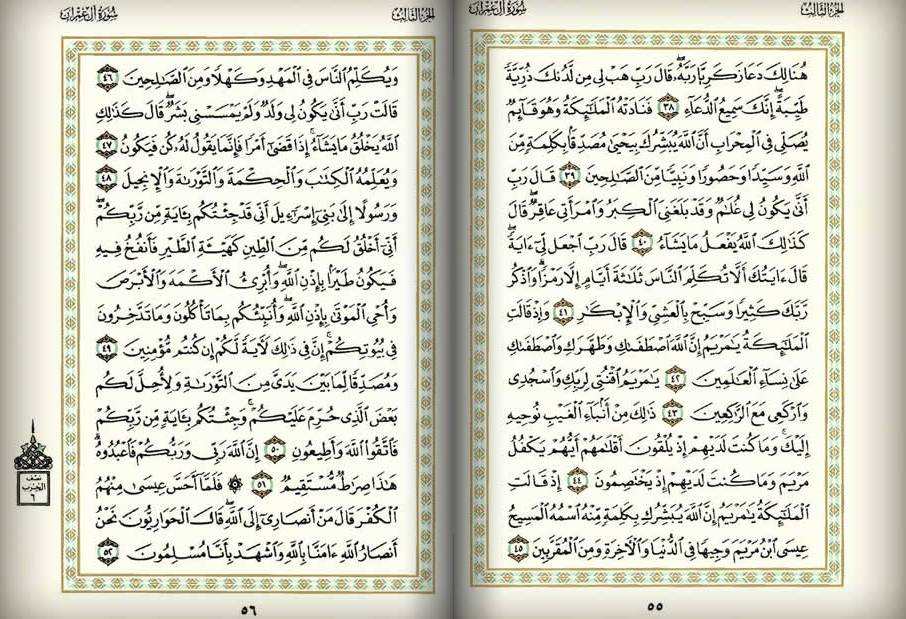 الجزء الثالث
سورة آل عمران
هُنَالِكَ دَعَا زَكَرِيَّا رَبَّهُۥ ۖ قَالَ رَبِّ هَبْ لِى مِن لَّدُنكَ ذُرِّيَّةً
طَيِّبَةً ۖ إِنَّكَ سَمِيعُ ٱلدُّعَآءِ ٣٨ فَنَادَتْهُ ٱلْمَلَـٰٓئِكَةُ وَهُوَ قَآئِمٌ
يُصَلِّى فِى ٱلْمِحْرَابِ أَنَّ ٱللَّهَ يُبَشِّرُكَ بِيَحْيَىٰ مُصَدِّقًۢا بِكَلِمَةٍ مِّنَ
ٱللَّهِ وَسَيِّدًا وَحَصُورًا وَنَبِيًّا مِّنَ ٱلصَّـٰلِحِينَ ٣٩ قَالَ رَبِّ
أَنَّىٰ يَكُونُ لِى غُلَـٰمٌ وَقَدْ بَلَغَنِىَ ٱلْكِبَرُ وَٱمْرَأَتِى عَاقِرٌ ۖ قَالَ
كَذَٰلِكَ ٱللَّهُ يَفْعَلُ مَا يَشَآءُ ٤٠ قَالَ رَبِّ ٱجْعَل لِّىٓ ءَايَةً ۖ
قَالَ ءَايَتُكَ أَلَّا تُكَلِّمَ ٱلنَّاسَ ثَلَـٰثَةَ أَيَّامٍ إِلَّا رَمْزًا ۗ وَٱذْكُر
رَّبَّكَ كَثِيرًا وَسَبِّحْ بِٱلْعَشِىِّ وَٱلْإِبْكَـٰرِ ٤١ وَإِذْ قَالَتِ
ٱلْمَلَـٰٓئِكَةُ يَـٰمَرْيَمُ إِنَّ ٱللَّهَ ٱصْطَفَىٰكِ وَطَهَّرَكِ وَٱصْطَفَىٰكِ
عَلَىٰ نِسَآءِ ٱلْعَـٰلَمِينَ ٤٢ يَـٰمَرْيَمُ ٱقْنُتِى لِرَبِّكِ وَٱسْجُدِى
وَٱرْكَعِى مَعَ ٱلرَّٰكِعِينَ ٤٣ ذَٰلِكَ مِنْ أَنۢبَآءِ ٱلْغَيْبِ نُوحِيهِ
إِلَيْكَ ۚ وَمَا كُنتَ لَدَيْهِمْ إِذْ يُلْقُونَ أَقْلَـٰمَهُمْ أَيُّهُمْ يَكْفُلُ
مَرْيَمَ وَمَا كُنتَ لَدَيْهِمْ إِذْ يَخْتَصِمُونَ ٤٤ إِذْ قَالَتِ
ٱلْمَلَـٰٓئِكَةُ يَـٰمَرْيَمُ إِنَّ ٱللَّهَ يُبَشِّرُكِ بِكَلِمَةٍ مِّنْهُ ٱسْمُهُ ٱلْمَسِيحُ
عِيسَى ٱبْنُ مَرْيَمَ وَجِيهًا فِى ٱلدُّنْيَا وَٱلْـَٔاخِرَةِ وَمِنَ ٱلْمُقَرَّبِينَ ٤٥
٥٥
الجزء الثالث
سورة آل عمران
وَيُكَلِّمُ ٱلنَّاسَ فِى ٱلْمَهْدِ وَكَهْلًا وَمِنَ ٱلصَّـٰلِحِينَ ٤٦
قَالَتْ رَبِّ أَنَّىٰ يَكُونُ لِى وَلَدٌ وَلَمْ يَمْسَسْنِى بَشَرٌ ۖ قَالَ كَذَٰلِكِ
ٱللَّهُ يَخْلُقُ مَا يَشَآءُ ۚ إِذَا قَضَىٰٓ أَمْرًا فَإِنَّمَا يَقُولُ لَهُۥ كُن فَيَكُونُ ٤٧
وَيُعَلِّمُهُ ٱلْكِتَـٰبَ وَٱلْحِكْمَةَ وَٱلتَّوْرَىٰةَ وَٱلْإِنجِيلَ ٤٨
وَرَسُولًا إِلَىٰ بَنِىٓ إِسْرَٰٓءِيلَ أَنِّى قَدْ جِئْتُكُم بِـَٔايَةٍ مِّن رَّبِّكُمْ ۖ
أَنِّىٓ أَخْلُقُ لَكُم مِّنَ ٱلطِّينِ كَهَيْـَٔةِ ٱلطَّيْرِ فَأَنفُخُ فِيهِ
فَيَكُونُ طَيْرًۢا بِإِذْنِ ٱللَّهِ ۖ وَأُبْرِئُ ٱلْأَكْمَهَ وَٱلْأَبْرَصَ
وَأُحْىِ ٱلْمَوْتَىٰ بِإِذْنِ ٱللَّهِ ۖ وَأُنَبِّئُكُم بِمَا تَأْكُلُونَ وَمَا تَدَّخِرُونَ
فِى بُيُوتِكُمْ ۚ إِنَّ فِى ذَٰلِكَ لَـَٔايَةً لَّكُمْ إِن كُنتُم مُّؤْمِنِينَ ٤٩
وَمُصَدِّقًا لِّمَا بَيْنَ يَدَىَّ مِنَ ٱلتَّوْرَىٰةِ وَلِأُحِلَّ لَكُم
بَعْضَ ٱلَّذِى حُرِّمَ عَلَيْكُمْ ۚ وَجِئْتُكُم بِـَٔايَةٍ مِّن رَّبِّكُمْ
فَٱتَّقُوا۟ ٱللَّهَ وَأَطِيعُونِ ٥٠ إِنَّ ٱللَّهَ رَبِّى وَرَبُّكُمْ فَٱعْبُدُوهُ ۗ
هَـٰذَا صِرَٰطٌ مُّسْتَقِيمٌ ٥١ ۞ فَلَمَّآ أَحَسَّ عِيسَىٰ مِنْهُمُ
ٱلْكُفْرَ قَالَ مَنْ أَنصَارِىٓ إِلَى ٱللَّهِ ۖ قَالَ ٱلْحَوَارِيُّونَ نَحْنُ
أَنصَارُ ٱللَّهِ ءَامَنَّا بِٱللَّهِ وَٱشْهَدْ بِأَنَّا مُسْلِمُونَ ٥٢
نصف
الحزب
٦
٥٦